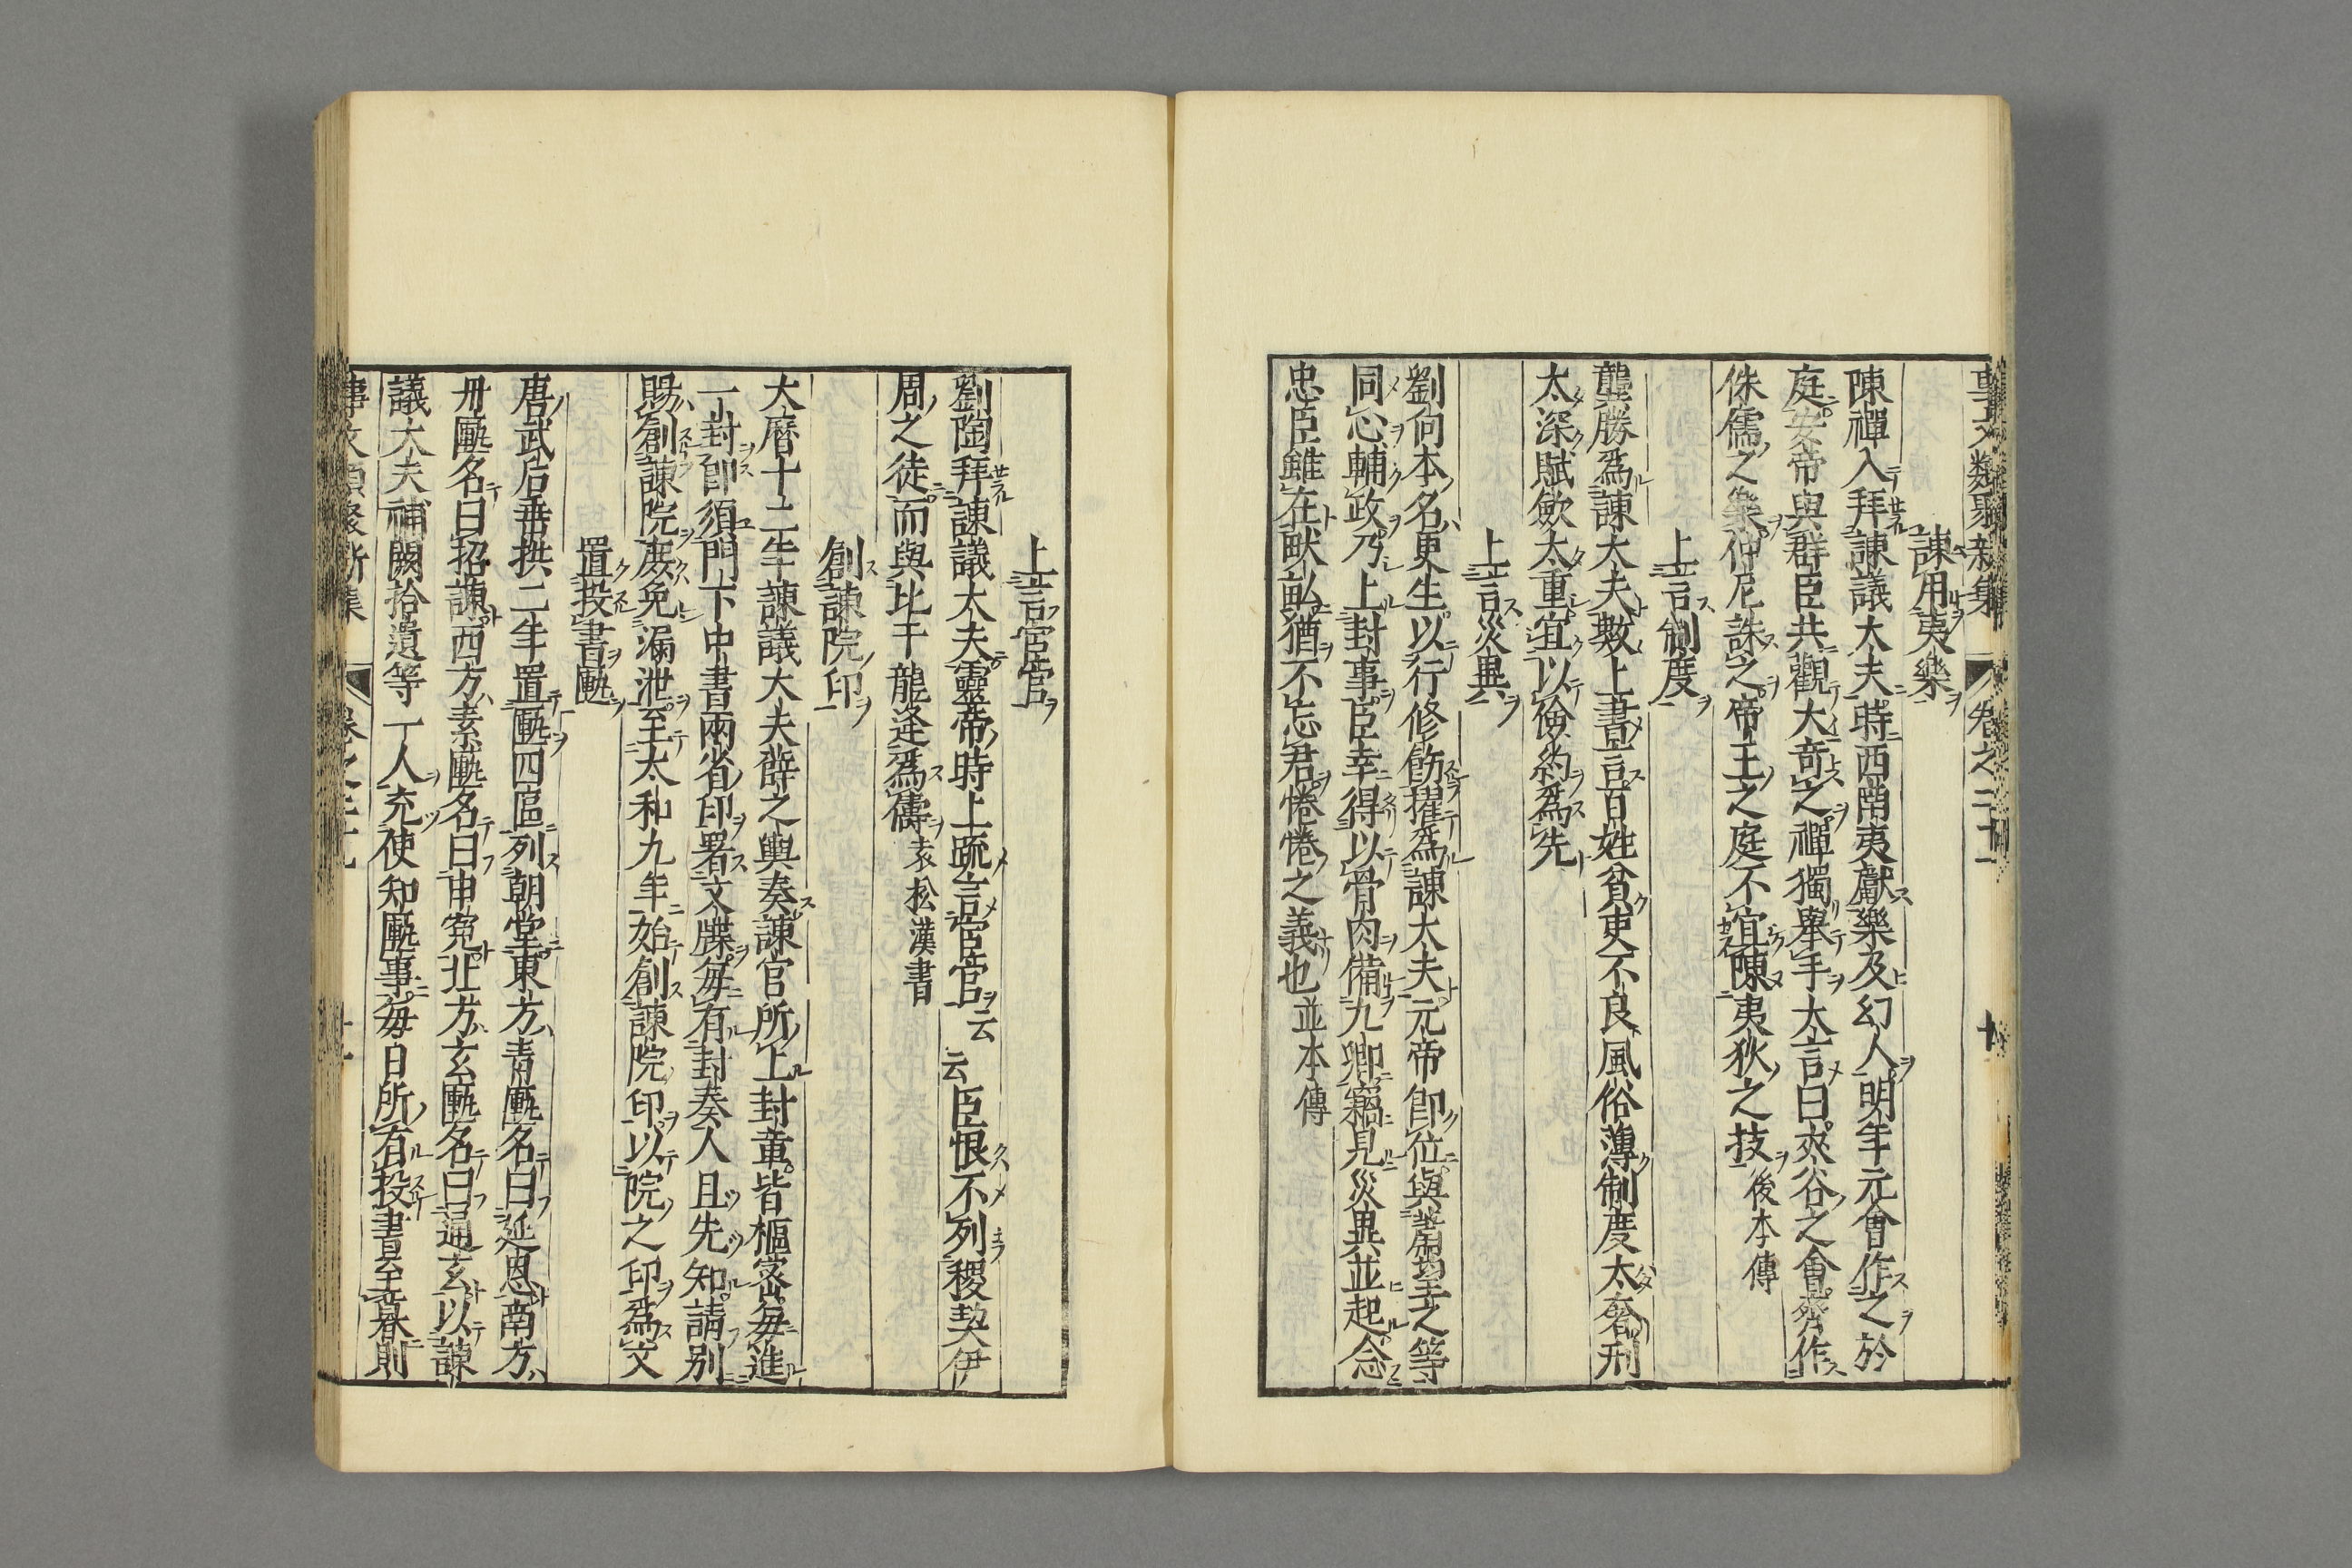 事文類聚新集 卷之二十一 十
諫用夷樂
陳禪入拜諫議大夫時西南夷獻樂及幻人明年元會作之於
庭安帝與群臣共觀大奇之禪獨舉手大言曰夾谷之會齊作
侏儒之樂仲尼誅之帝王之庭不宜陳夷狄之技後本傳
上言制度
龔勝爲諫大夫數上書言百姓貧吏不良風俗薄制度太奢刑
太深賦斂太重宜以儉約爲先
上言災異
劉向本名更生以行修飭擢爲諫大夫元帝卽位與蕭望之等
同心輔政乃上封事臣幸得以骨肉備九卿竊見災異並起念
忠臣雖在畎畝猶不忘君惓惓之義也並本傳
上言宦官
劉陶拜諫議大夫靈帝時上疏言宦官云云臣恨不列稷契伊
周之徒而與比干龍逢爲儔袁松漢書
創諫院印
大曆十二年諫議大夫薛之輿奏諫官所上封章皆樞密每進
一封卽須門下中書兩省印署文牒每有封奏人且先知請別
賜創諫院庶免漏泄至太和九年始創諫院印以院之印爲文
置投書匭
唐武后垂拱二年置匭四區列朝堂東方青匭名曰延恩南方
丹匭名曰招諫西方素匭名曰申寃北方玄匭名曰通玄以諫
議大夫補闕拾遺等一人充使知匭事每日所有投書至暮則
事文類聚新集 卷之二十一